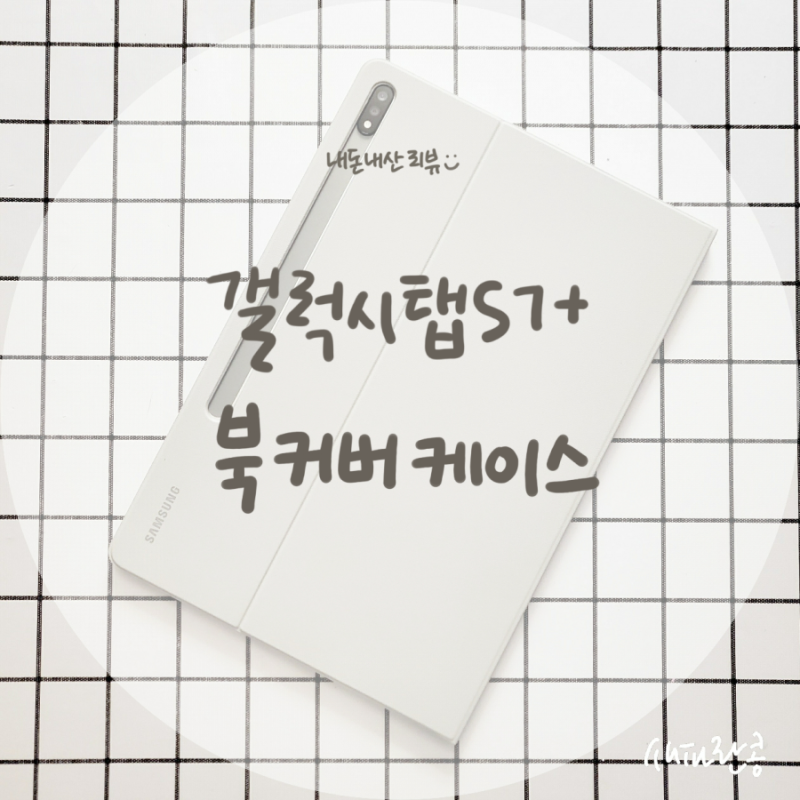 내돈내산 리뷰
갤럭시탭S7+
북커버 케이스
SAMSUNG